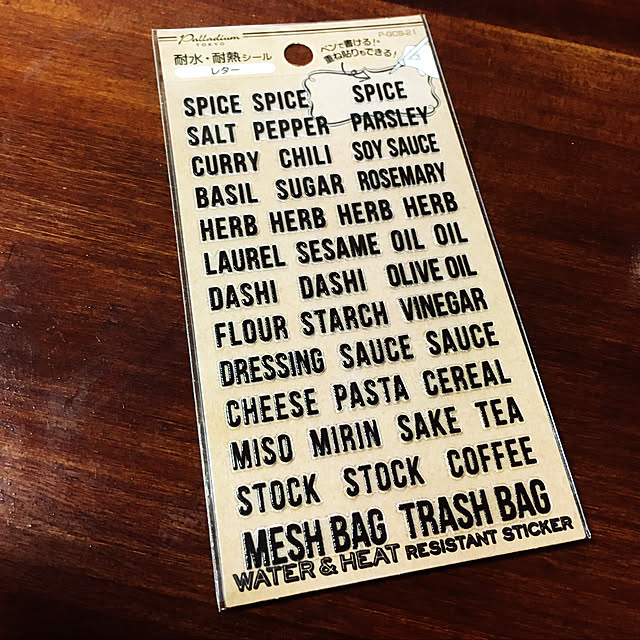 Palladium
TOKYO
P-GCS-21
耐水・耐熱シール
レター
ペンで書ける!
重ね貼りもできる!
SPICE SPICE SPICE
SALT PEPPER PARSLEY
CURRY CHILI SOY SAUCE
BASIL SUGAR ROSEMARY
HERB HERB HERB HERB
LAUREL SESAME OIL OIL
DASHI DASHI OLIVE OIL
FLOUR STARCH VINEGAR
DRESSING SAUCE SAUCE
CHEESE PASTA CEREAL
MISO MIRIN SAKE TEA
STOCK STOCK COFFEE
MESH BAG TRASH BAG
WATER & HEAT RESISTANT STICKER